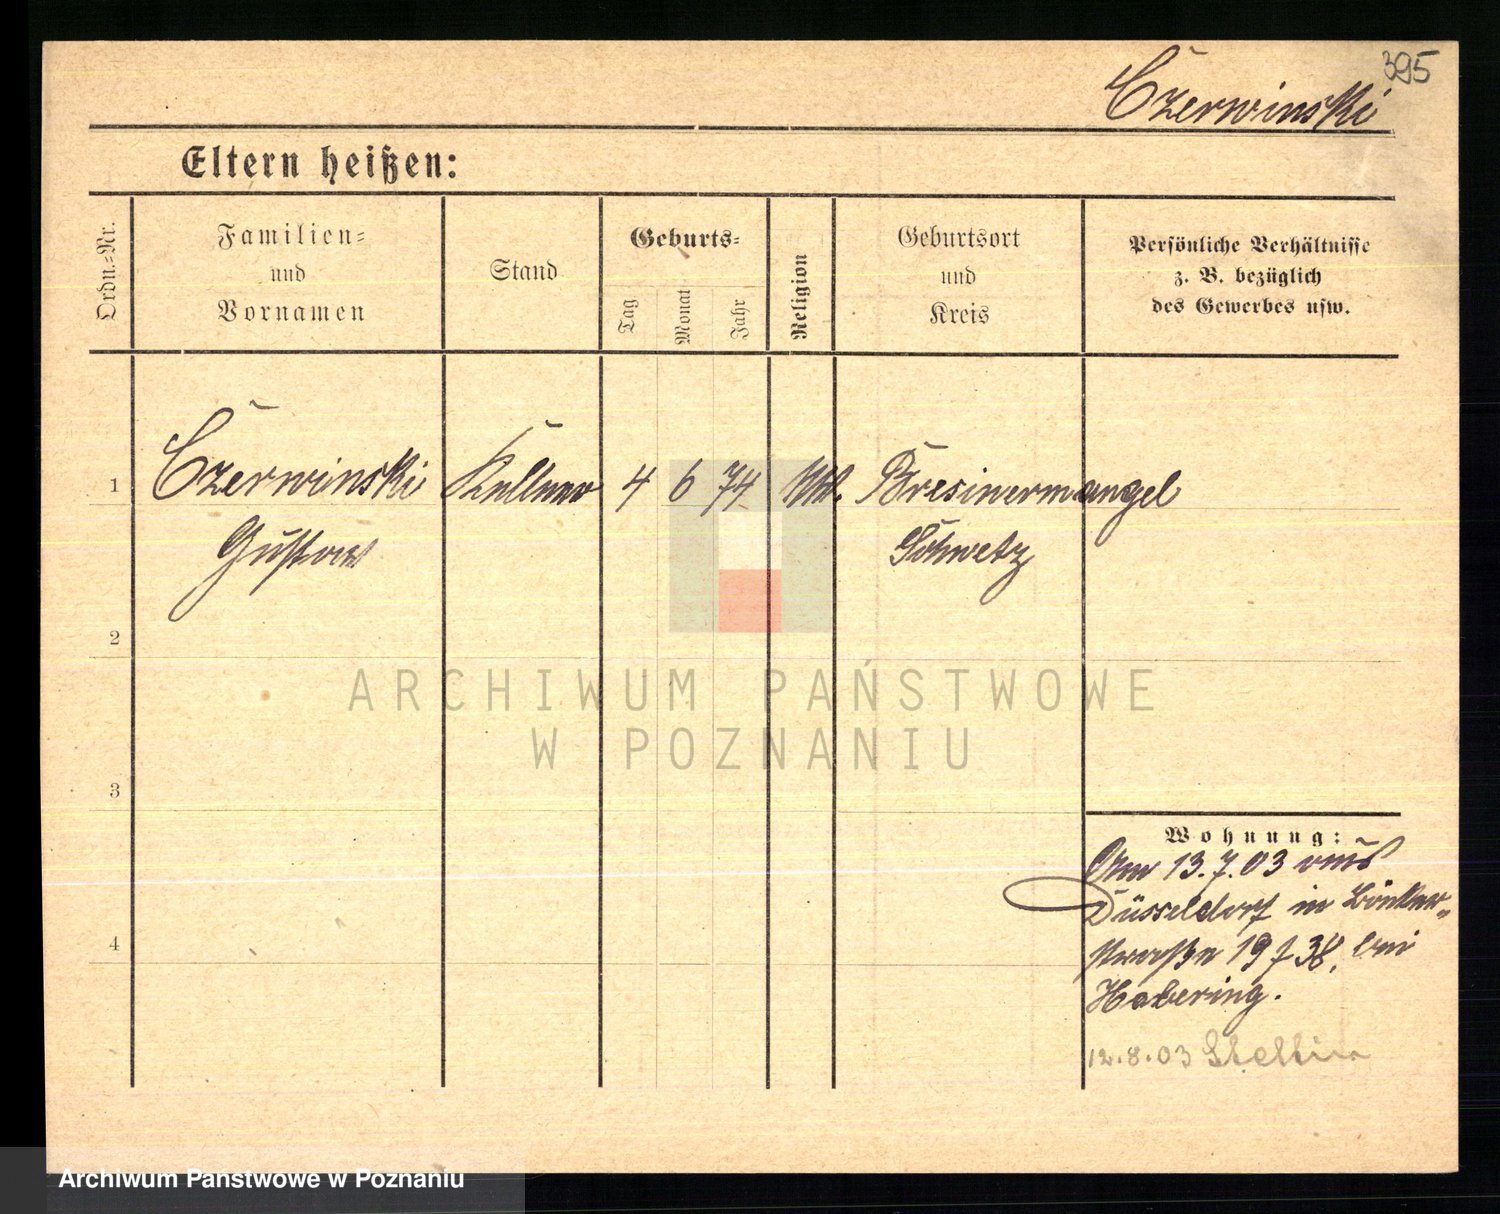 395
Czerwinski
Eltern heißen:
Ordn.-Nr.
Familien-
und
Vornamen
Stand
Geburts-
Tag
Monat
Jahr
Religion
Geburtsort
und
Kreis
Persönliche Verhältnisse
z. B. bezüglich
des Gewerbes usw.
1 Czerwinski Kellner 4 6 74 Bresinermangel
Gustav Schwetz
2
3
4
ARCHIWUM PAŃSTWOWE
W POZNANIU
Wohnung:
Am 13.7.03 aus
Düsseldorf in Bönker-
straße 19 f 38, bei
Habering.
12.8.03 Stettin
Archiwum Państwowe w Poznaniu